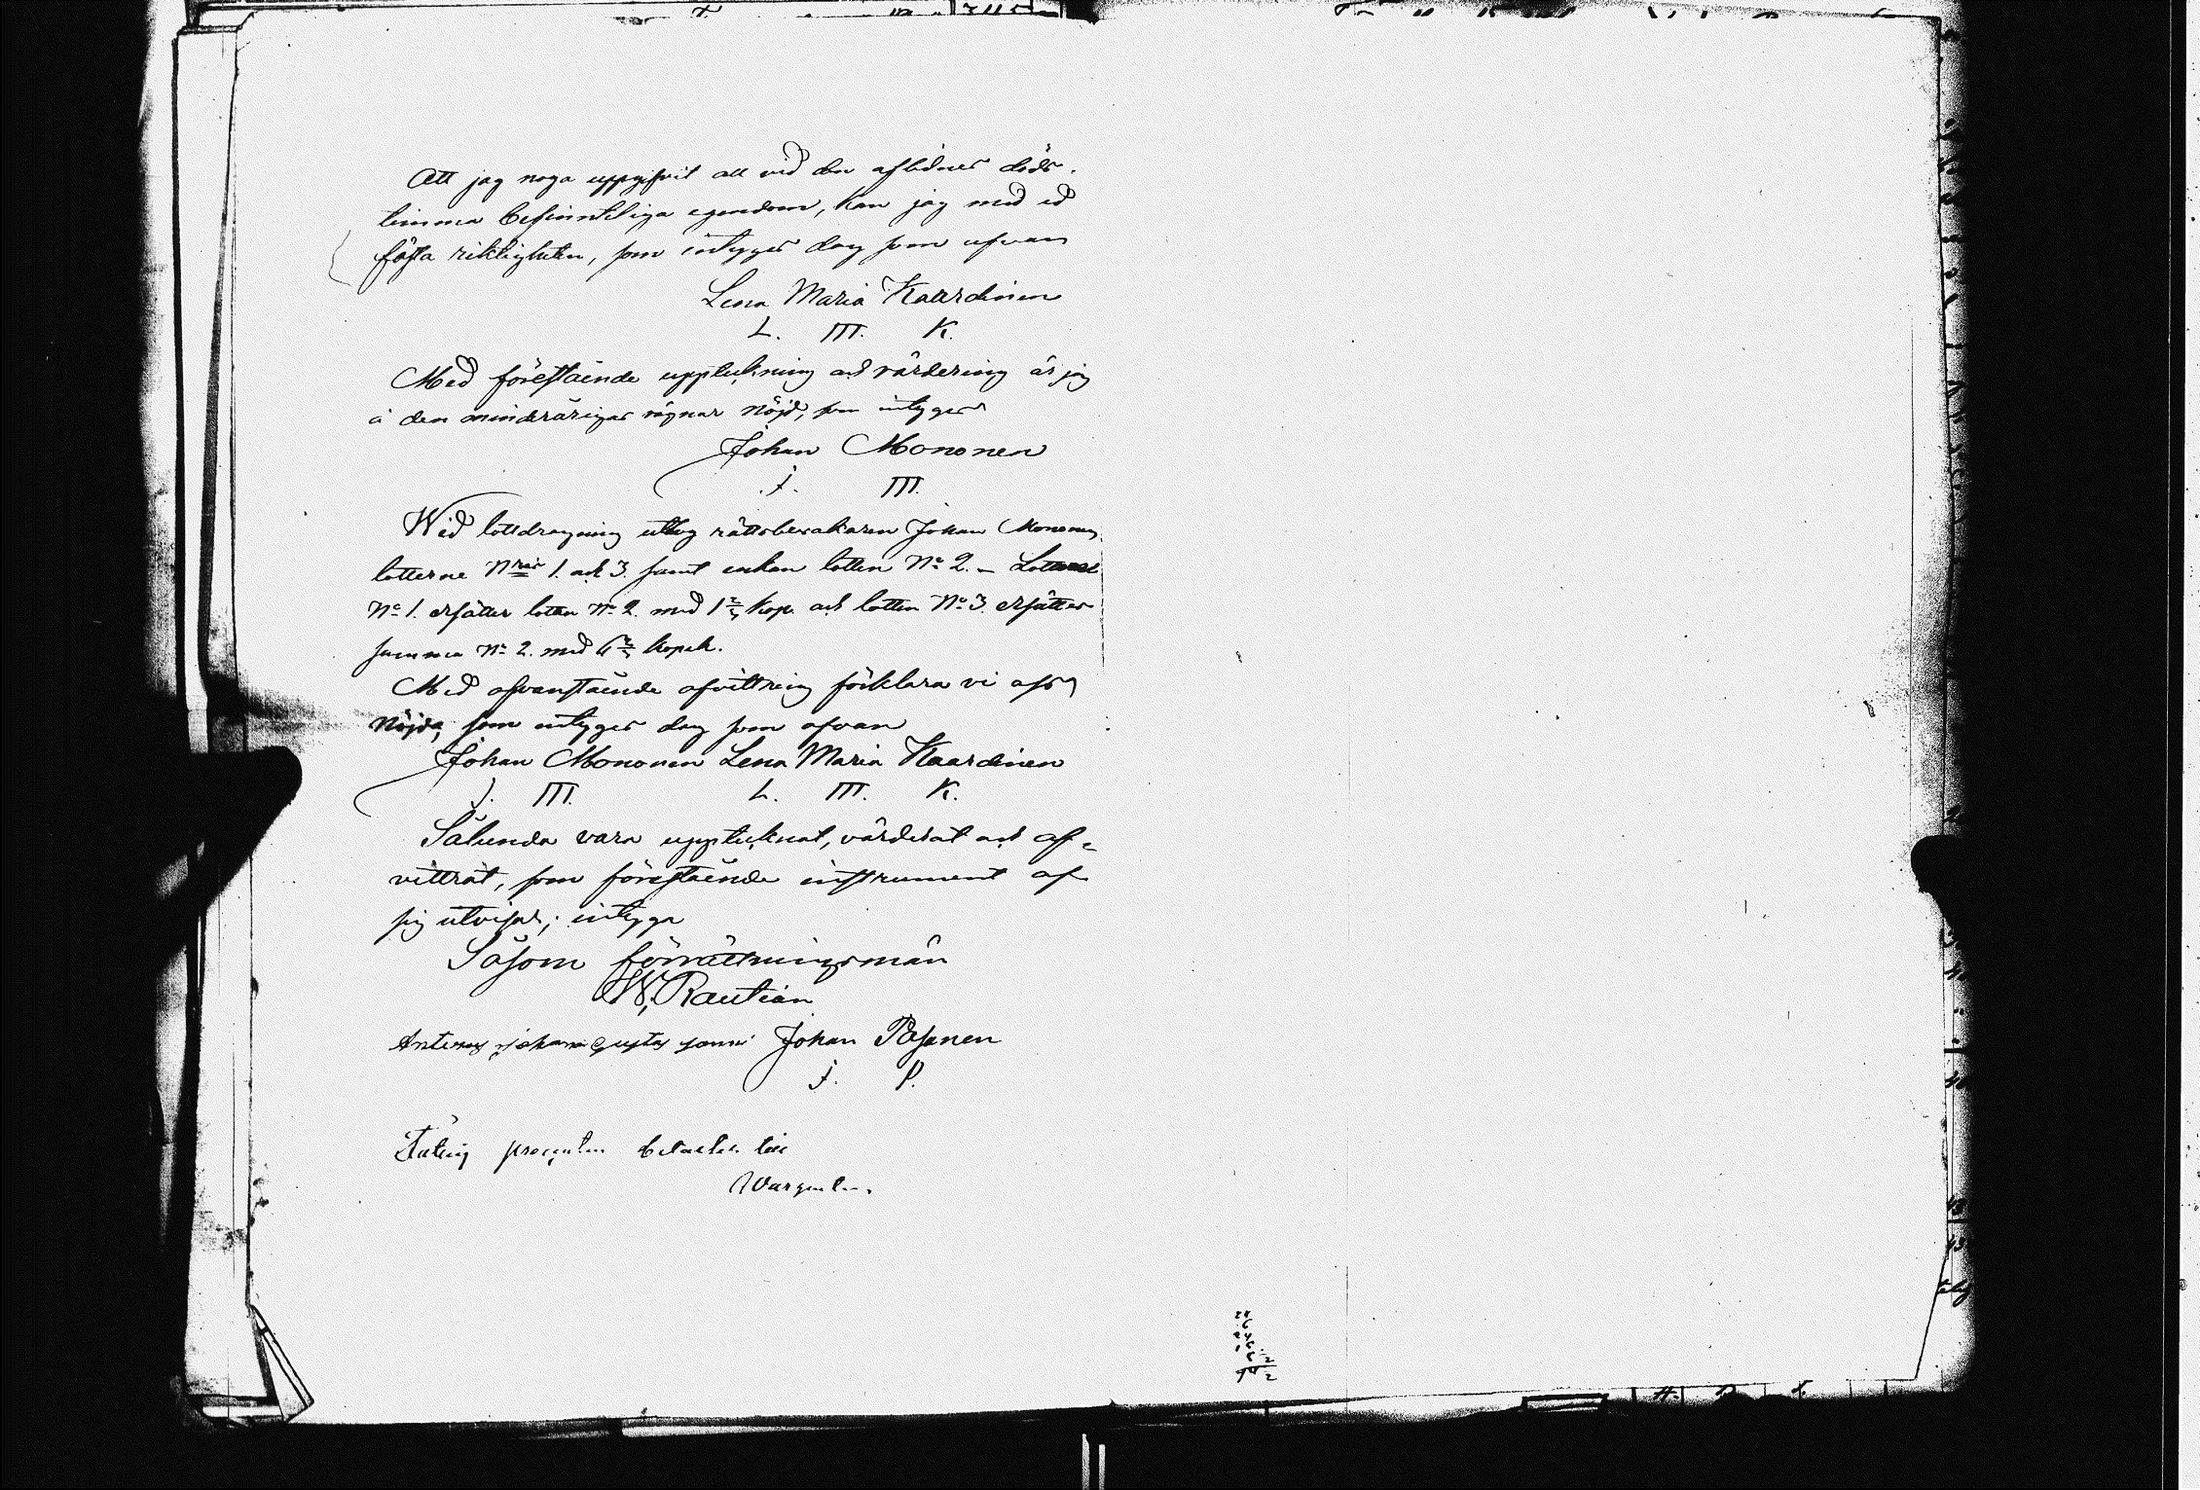 Att jag noga uppgifvit all vid den aflidnes döds-
timma befinnteliga egendom, kan jag med ed
fästa riktigheten, som intygges dag som ofvan
Lena Maria Kaardinen
L. M. K.
Med förestående uppteckning och värdering är jag
å den minderåriges vägnar nöjd, som intyges
Johan Mononen
J. M.
Wid lottdragning uttog rättsbevakaren Johan Mononen
lotterne N:ris 1. och 3. samt enkan lotten N:o 2. –
N:o 1. ersätter lotten N:o 2. med 1 2/3 kop. och lotten N:o 3. ersätter
samma N:o 2. med 6 2/3 kopek.
Med ofvanstående afvittring förklara vi oss
nöjda, som intyges dag som ofvan
Johan Mononen Lena Maria Kaardinen
J. M. L. M. K.
Sålunda vara upptecknat, värderat och af-
vittrat, som förestående instrument af
sig utvisar; intyga
Såsom förrättningsmän
W. Rautiain
Johan Pasanen
J. P.
Fattig procenten betalter till